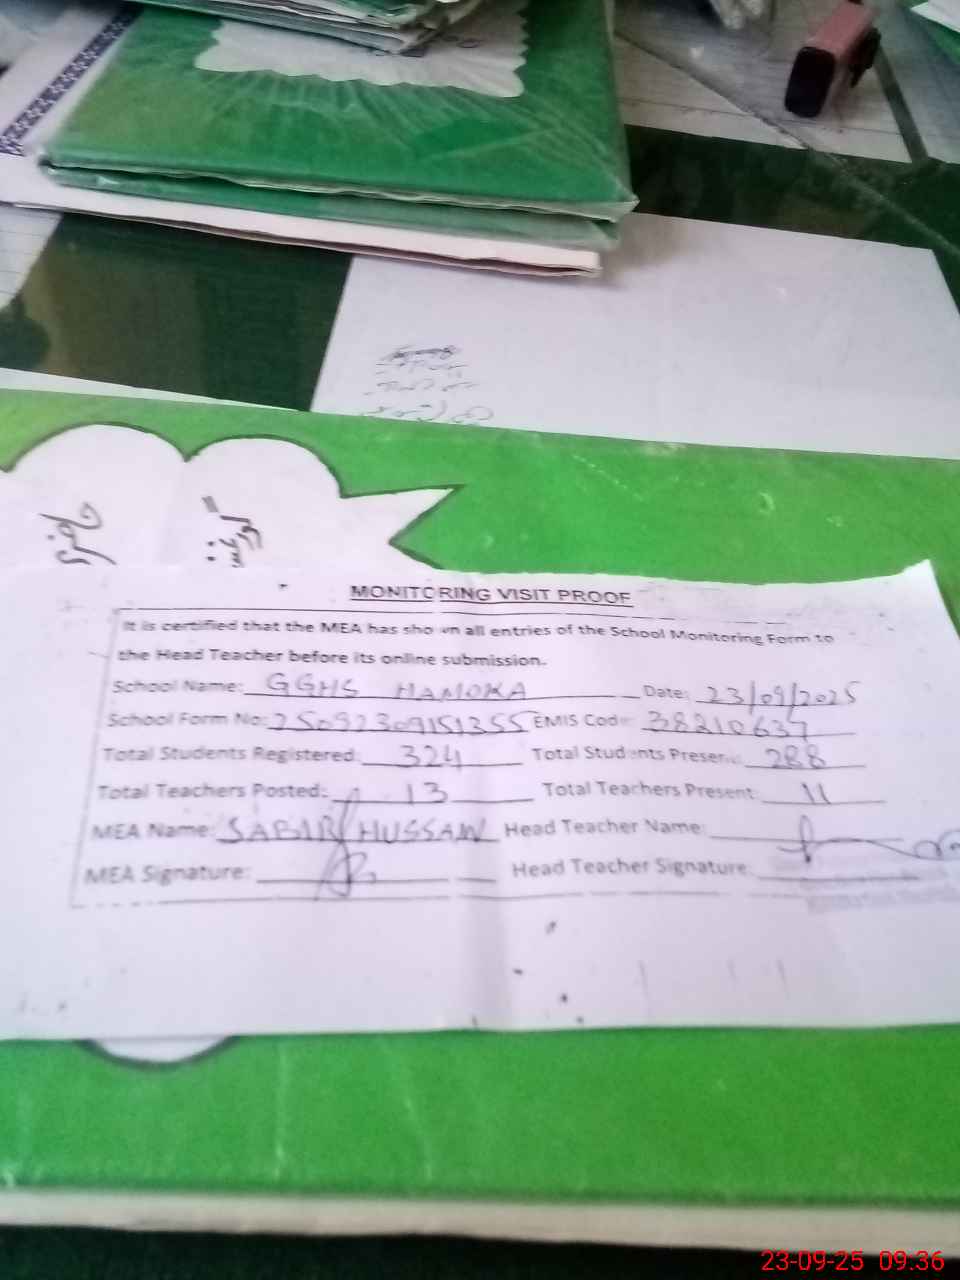 MONITORING VISIT PROOF
It is certified that the MEA has shown all entries of the School Monitoring Form to
the Head Teacher before its online submission.
School Name: GGHS HAMOKA Date: 23/09/2025
School Form No: 25092309151355 EMIS Code: 38210637
Total Students Registered: 324 Total Students Present: 288
Total Teachers Posted: 13 Total Teachers Present: 11
MEA Name: SABIR HUSSAIN Head Teacher Name:
MEA Signature: Head Teacher Signature:
23-09-25 09.36